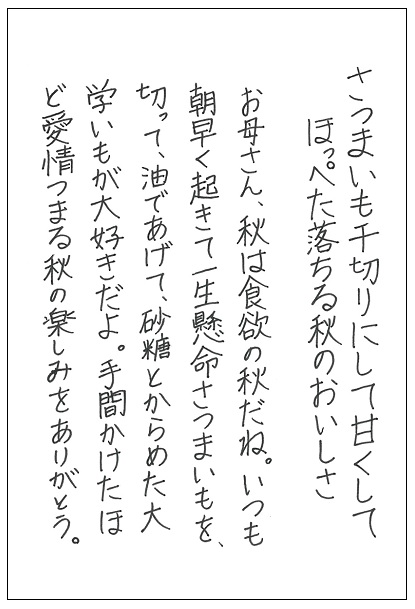 さつまいも千切りにして甘くして
ほっぺた落ちる秋のおいしさ
お母さん、秋は食欲の秋だね。いつも
朝早く起きて一生懸命さつまいもを、
切って、油であげて、砂糖とからめた大
学いもが大好きだよ。手間かけたほ
ど愛情つまる秋の楽しみをありがとう。